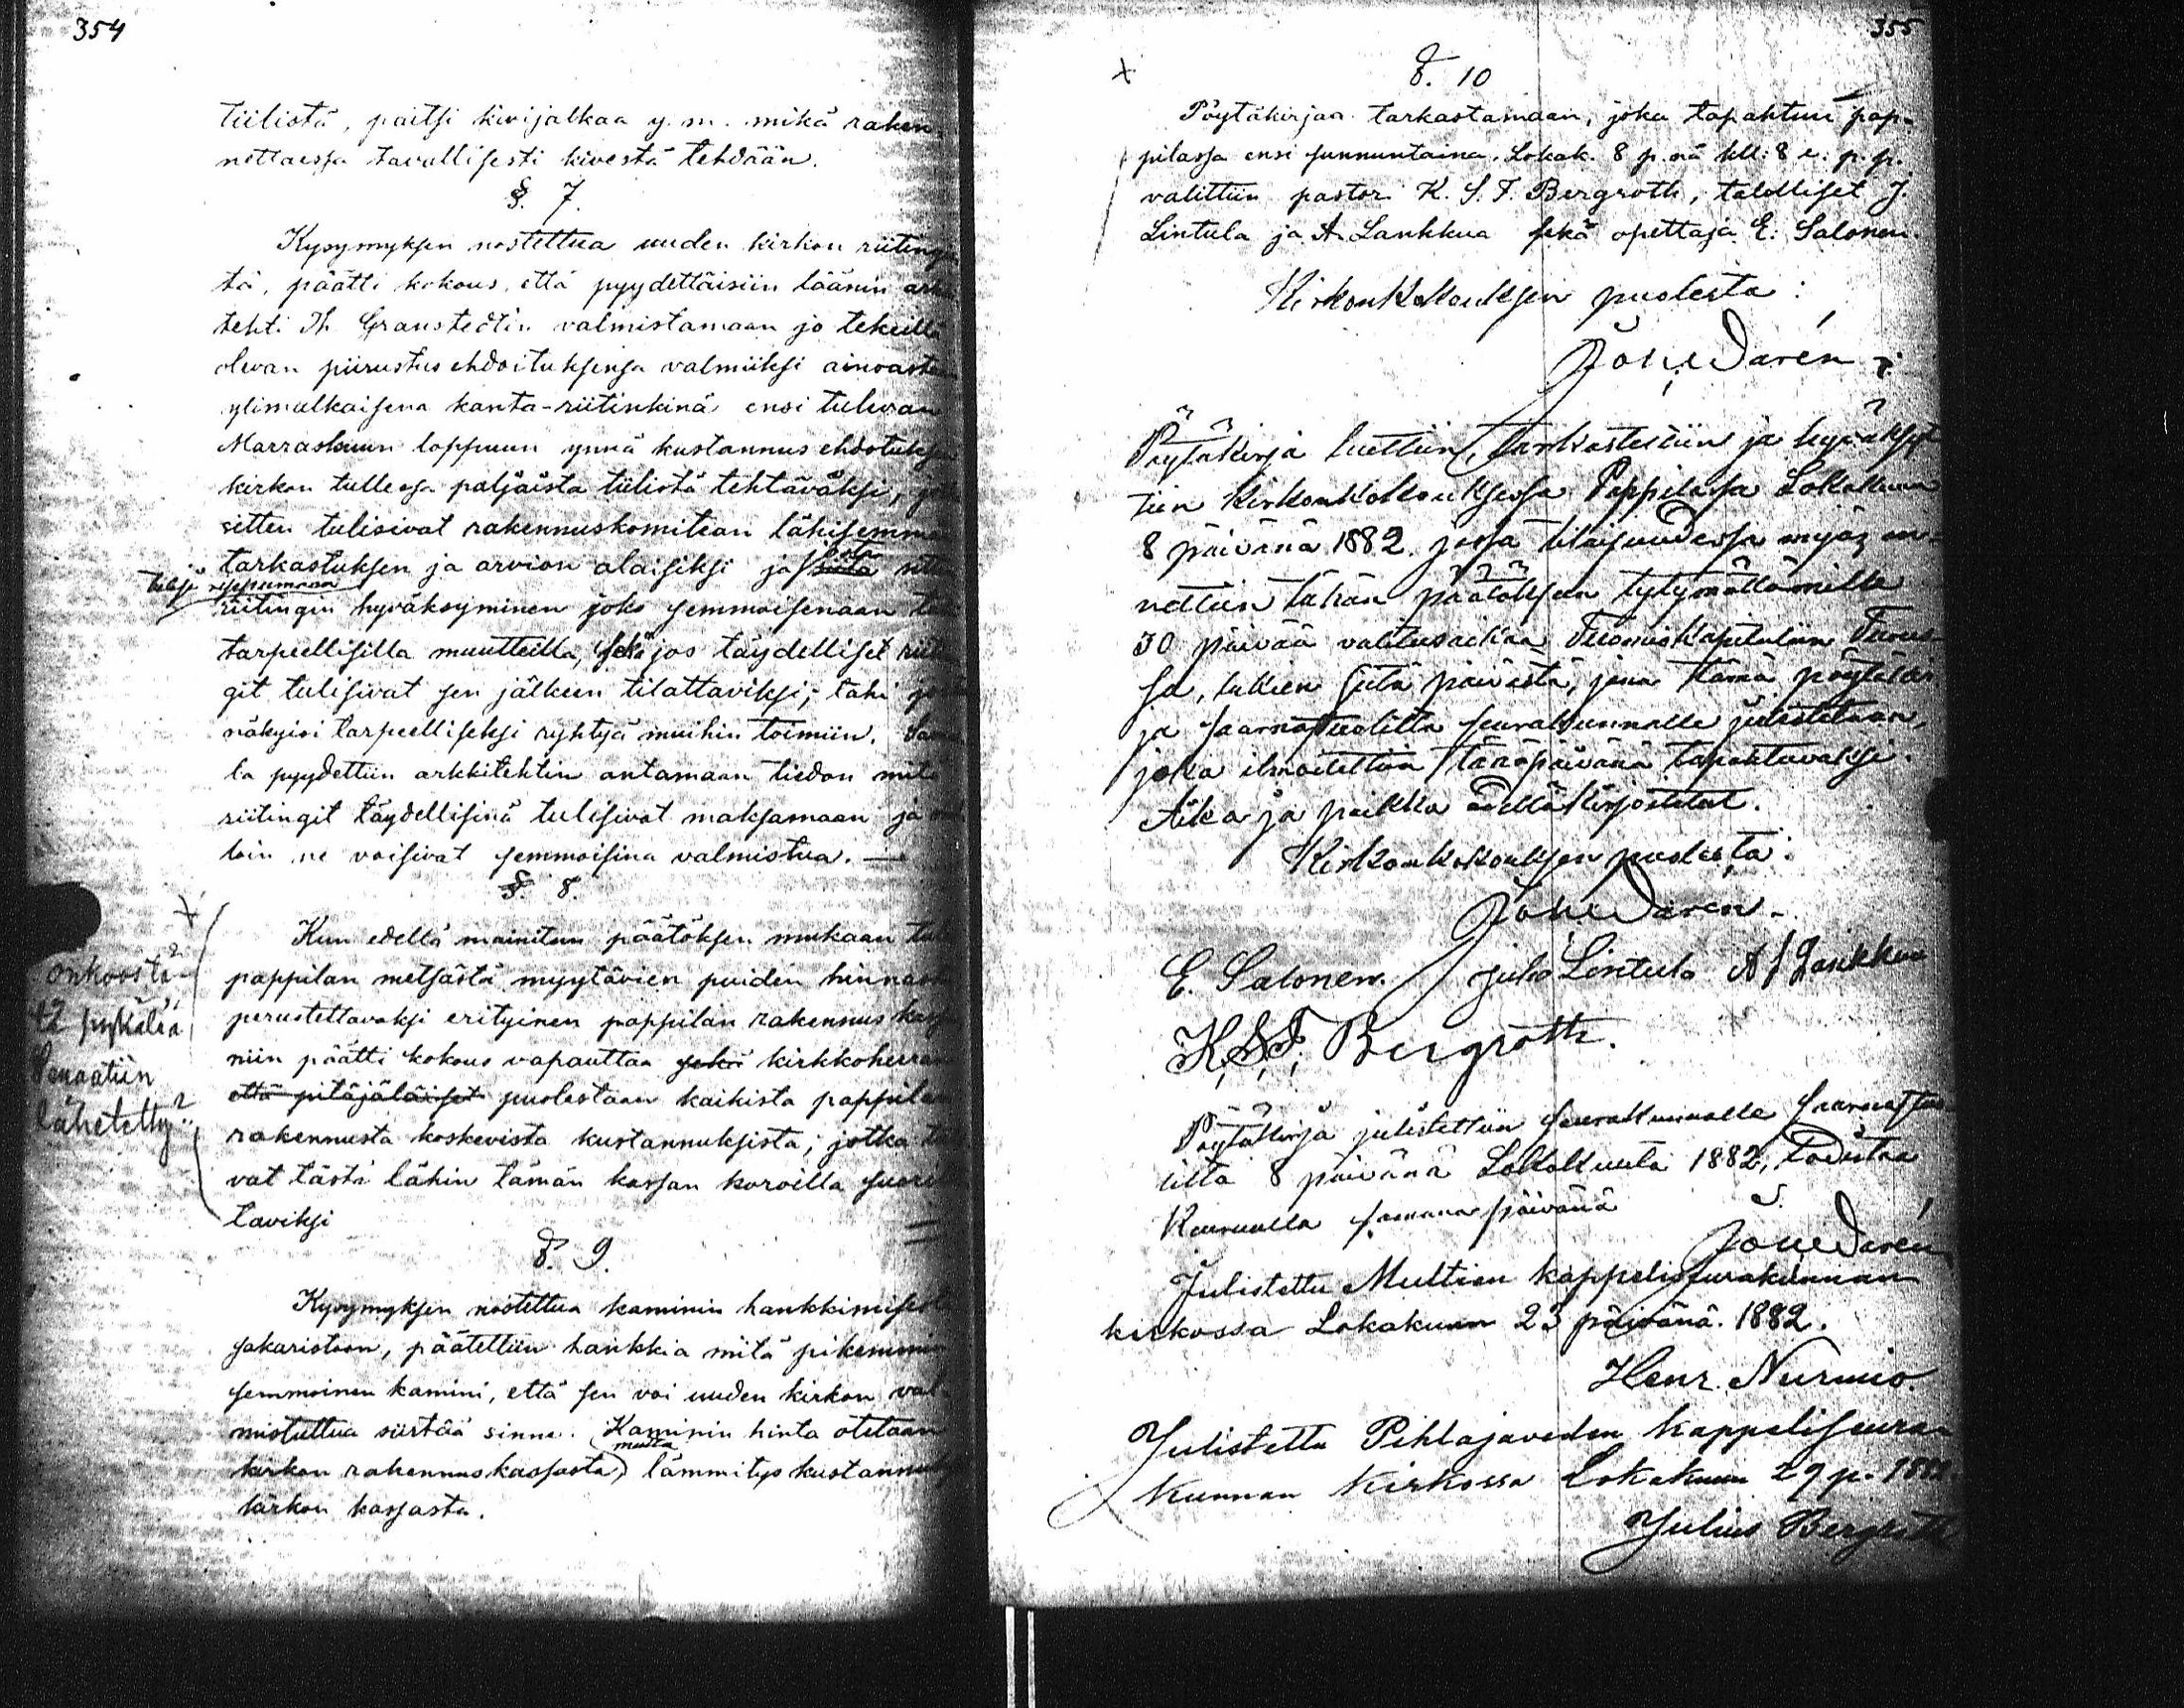 354
tiilistä, paitsi kivijalkaa y. m. mikä raken-
nettaessa tavallisesti kivestä tehdään.
§. 7.
Kysymyksen nostettua uuden kirkon riiting
tä, päätti kokous, että pyydettäisiin läänin ark
tehti Th. Granstedtin valmistamaan jo tekeillä
olevan piirustus ehdoituksensa valmiiksi ainoasta
ylimalkaisena kanta-riitinkinä ensi tulevan
Marraskuun loppuun ynnä kustannus ehdotuksen
kirkon tulleesa paljaista tiilistä tehtäväksi,
sitten tulisivat rakennuskomitean lähisemmä
tarkastuksen ja arvion alaisiksi ja
tulisi riippumaan
riitingin hyväksyminen joko semmoisenaan
tarpeellisilla muutteilla, sekä jos täydelliset riit
git tulisivat sen jälkeen tilattaviksi; tahi
näkyisi tarpeelliseksi ryhtyä muihin toimiin.
la pyydettiin arkkitehtin antamaan tiedon mitä
riitingit täydellisinä tulisivat maksamaan ja
loin ne voisivat semmoisina valmistua. —
§. 8.
Kun edellä mainitun päätöksen mukaan
pappilan metsästä myytävien puiden hinnasta
perustettavaksi erityinen pappilan rakennus kas
niin päätti kokous vapauttaa sekä kirkkoherran
että pitäjäläiset puolestaan kaikista pappilan
rakennusta koskevista kustannuksista; jotka
vat tästä lähin tämän kassan koroilla suori
taviksi
onko osta-
pykälää
Senaatiin
lähetetty?
§. 9.
Kysymyksen nostettua kaminin hankkimisesta
sakaristoon, päätettiin hankkia mitä pikemmin
semmoinen kamini, että sen voi uuden kirkon val
mistuttua siirtää sinne. Kaminin hinta otetaan
mutta
kirkon rakennuskassasta, lämmitys kustannus
kirkon kassasta.
355
§. 10
Pöytäkirjaa tarkastamaan, joka tapahtuu pap-
pilassa ensi sunnuntaina, Lokak. 8 p. nä kll: 8 e. p. p.
valittiin pastor K. S. F. Bergroth, talolliset J.
Lintula ja A. Lankkua sekä opettaja E. Salonen.
Kirkonkokouksen puolesta:
Joh. Darén
Pöytäkirja luettiin, tarkastettiin ja hyväksyt
tiin Kirkonkokouksessa Pappilassa Lokakuun
8 päivänä 1882. jossa tilaisuudessa myös an-
nettiin tähän päätökseen tytymättömille
30 päivää valitusaikaa Tuomiokapituliin Turus-
sa, lukien siitä päivästä, jona tämä pöytäkir
ja saarnatuolilta seurakunnalle julistetaan,
joka ilmoitettiin tänäpäivänä tapahtuvaksi.
Aika ja paikka edelläkirjoitetut.
Kirkonkokouksen puolesta:
Joh. Darén.
E. Salonen. Juho Lintula A Lankkua
K. S. F. Bergroth.
Pöytäkirja julistettiin seurakunnalle saarnastuo
lilta 8 päivänä Lokakuuta 1882, todistaa
Keuruulla samana päivänä
Joh. Darén
Julistettu Multian kappeliseurakunnan
kirkossa Lokakuun 23 päivänä. 1882.
Henr. Nurmio.
Julistettu Pihlajaveden Kappeliseura-
kunnan kirkossa Lokakuun 29 p. 1882.
Julius Bergroth